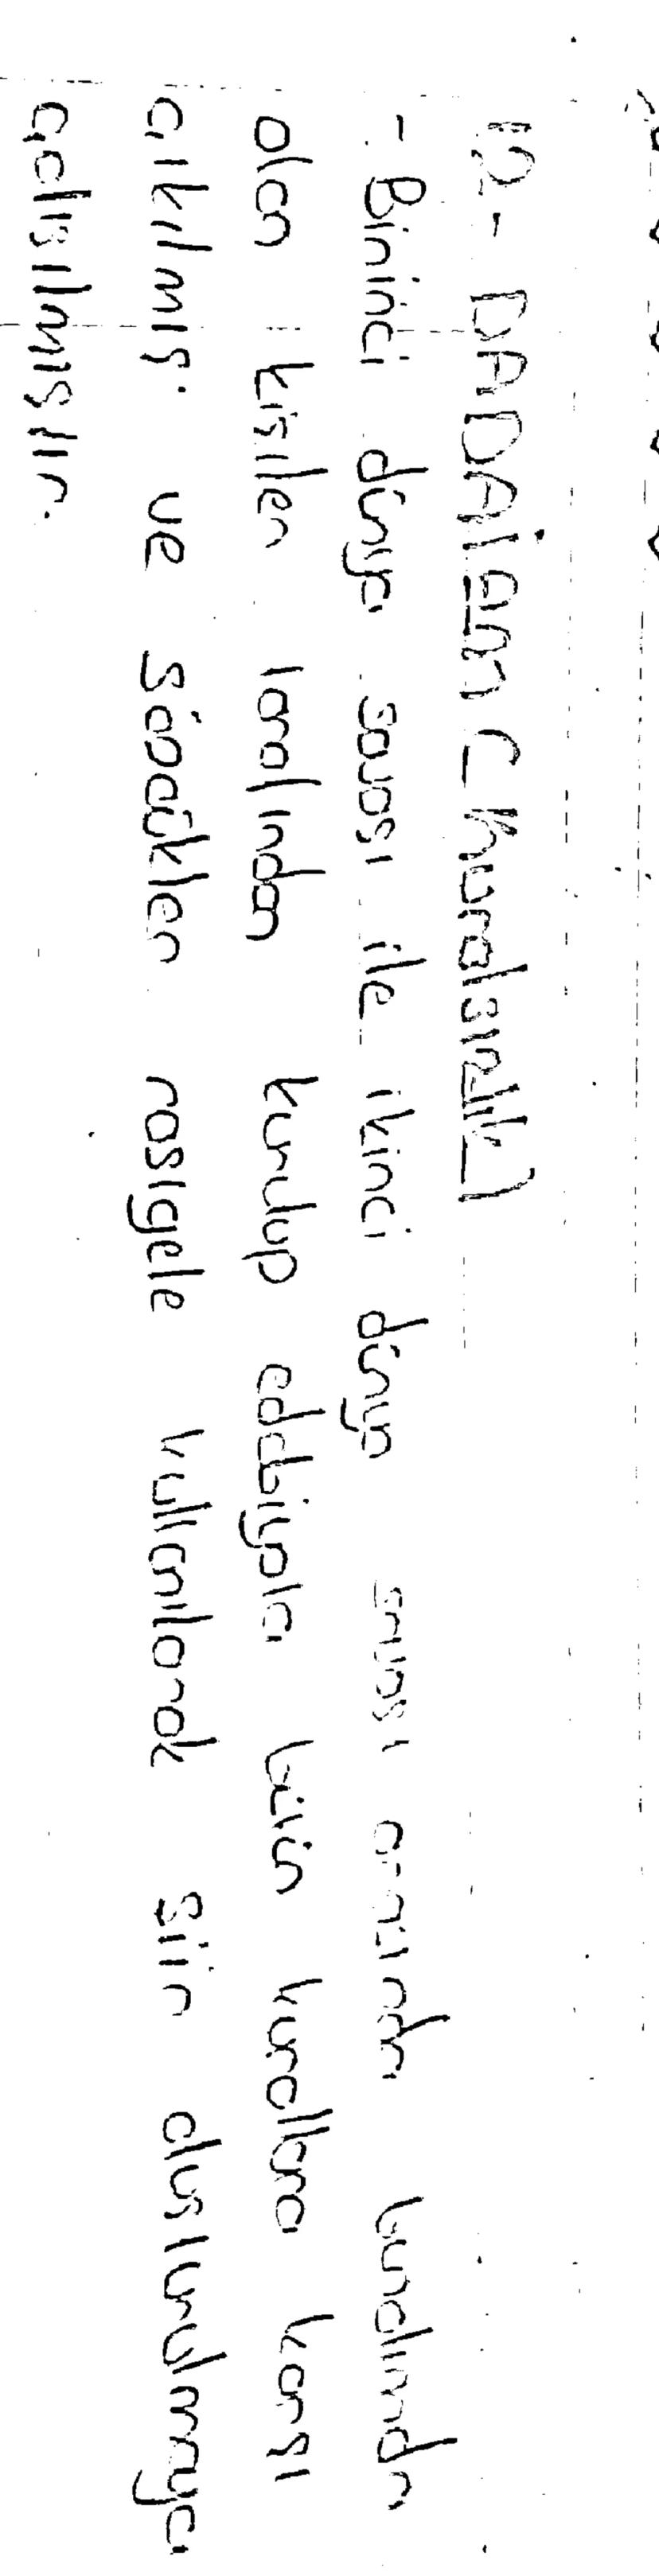 12- DADAİZM (kuralsızlık)
- Birinci dünya savaşı ile ikinci dünya savaşı arasında bunalımda
olan kişiler tarafından kurulup edebiyatta bütün kurallara karşı
çıkılmış ve sözcükler rastgele kullanılarak şiir oluşturulmaya
çalışılmıştır.